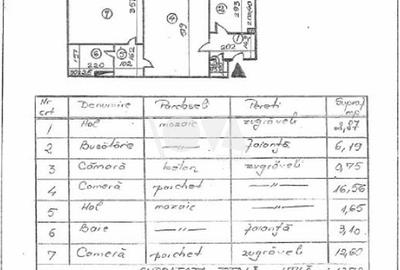 7
357
4
129
12
293
200/60
1
202
177
6
5
162
220
102
90125
Nr crt Denumire Pardoseli Pereti Supraf mp
1 Hol mozaic zugrăveli 3,87
2 Bucătărie —"— faianță 6,19
3 Cămară beton zugrăveli 0,75
4 Cameră parchet —"— 16,56
5 Hol mozaic —"— 1,65
6 Baie —"— faianță 3,10
7 Cameră parchet zugrăveli 12,60